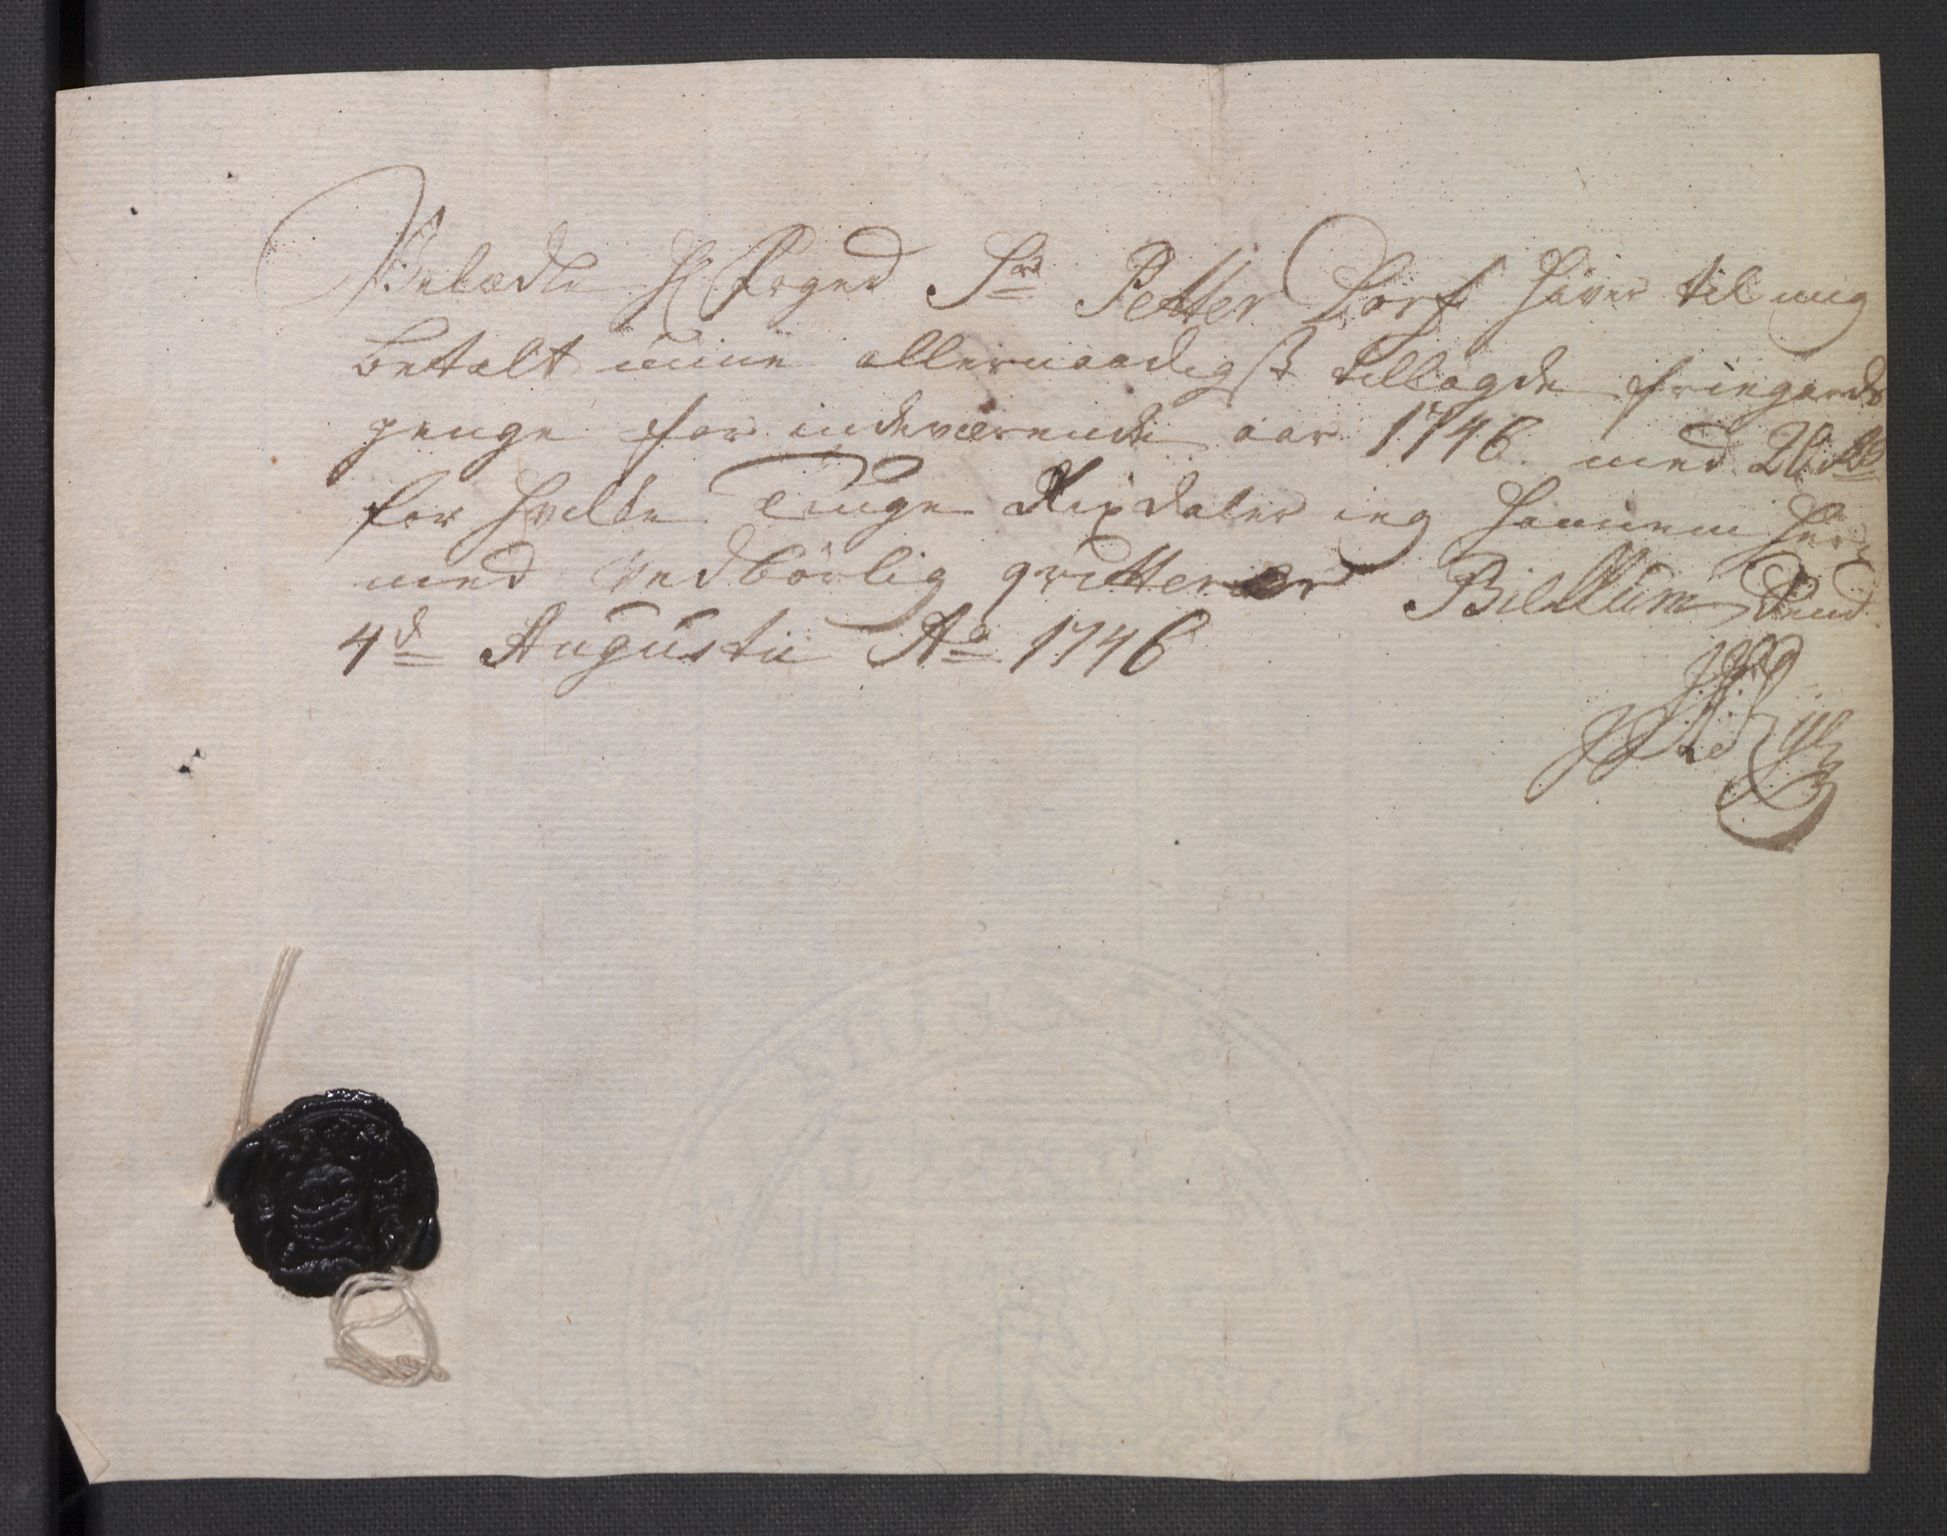 Velædle H Foged Sr Petter Dorf haver til mig
betalt mine allernaadigst tillagde friegaards
penge for indeværende aar 1746. med 20 Rd
for hvilke Tiuge Rixdaler ieg hannem her
med vedbörlig qvitterer Billum Dend
4d Augusti Ao 1746